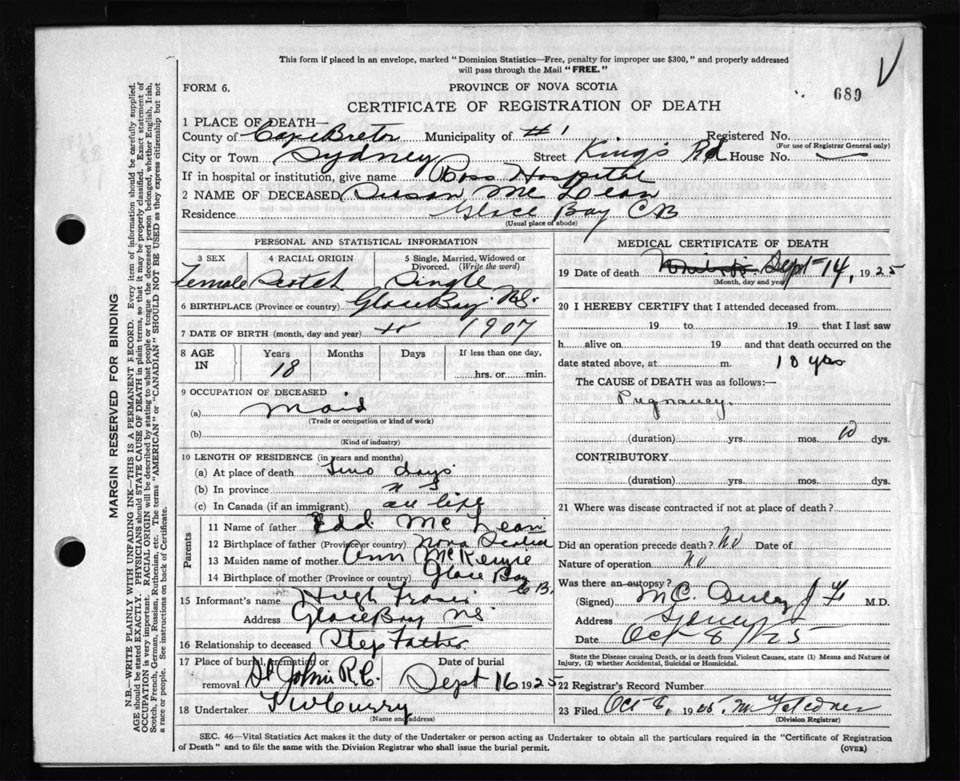 This form if placed in an envelope, marked "Dominion Statistics—Free, penalty for improper use $300," and properly addressed
will pass through the Mail "FREE."
FORM 6.
PROVINCE OF NOVA SCOTIA
689
CERTIFICATE OF REGISTRATION OF DEATH
1 PLACE OF DEATH—
County of Cape Breton Municipality of #1 Registered No.
(For use of Registrar General only)
City or Town Sydney Street Kings Rd House No.
If in hospital or institution, give name Ross Hospital
2 NAME OF DECEASED Susan Mc Lean
Residence Glace Bay CB
(Usual place of abode)
PERSONAL AND STATISTICAL INFORMATION
3 SEX 4 RACIAL ORIGIN 5 Single, Married, Widowed or Divorced. (Write the word)
Female Scotch Single
6 BIRTHPLACE (Province or country) Glace Bay N.S.
7 DATE OF BIRTH (month, day and year) 1907
8 AGE IN Years Months Days If less than one day,
18 hrs. or min.
9 OCCUPATION OF DECEASED
(a) Maid
(Trade or occupation or kind of work)
(b)
(Kind of industry)
10 LENGTH OF RESIDENCE (in years and months)
(a) At place of death Two days
(b) In province N S
(c) In Canada (if an immigrant) all life
Parents
11 Name of father Edd. Mc Lean
12 Birthplace of father (Province or country) Nova Scotia
13 Maiden name of mother Ann McKenzie
14 Birthplace of mother (Province or country) Glace Bay C B.
15 Informant's name Hugh Fraser
Address Glace Bay NS
16 Relationship to deceased Step Father
17 Place of burial, cremation or removal St John R.C. Date of burial Sept 16 1925
18 Undertaker Curry
(Name and address)
MEDICAL CERTIFICATE OF DEATH
19 Date of death Sept 14, 1925
(Month, day and year)
20 I HEREBY CERTIFY that I attended deceased from
19 to 19 that I last saw
h alive on 19 and that death occurred on the
date stated above, at m. 18 yrs
The CAUSE of DEATH was as follows:—
Pregnancy.
(duration) yrs. mos. 10 dys.
CONTRIBUTORY.
(duration) yrs. mos. dys.
21 Where was disease contracted if not at place of death?
Did an operation precede death? No Date of
Nature of operation No
Was there an autopsy?
(Signed) M.D.
Address Sydney
Date Oct 8/25
State the Disease causing Death, or in death from Violent Causes, state (1) Means and Nature of
Injury, (2) whether Accidental, Suicidal or Homicidal.
22 Registrar's Record Number
23 Filed Oct 8, 19
(Division Registrar)
SEC. 46—Vital Statistics Act makes it the duty of the Undertaker or person acting as Undertaker to obtain all the particulars required in the "Certificate of Registration
of Death" and to file the same with the Division Registrar who shall issue the burial permit.
(OVER)
MARGIN RESERVED FOR BINDING
N.B.—WRITE PLAINLY WITH UNFADING INK—THIS IS A PERMANENT RECORD. Every item of information should be carefully supplied.
AGE should be stated EXACTLY. PHYSICIANS should STATE CAUSE OF DEATH in plain terms, so that it may be properly classified. Exact statement of
OCCUPATION is very important. RACIAL ORIGIN will be described by stating to what people or tongue the deceased person belonged, whether English, Irish,
Scotch, French, German, Russian, Ruthenian, etc. The terms "AMERICAN" or "CANADIAN" SHOULD NOT BE USED as they express citizenship but not
a race or people. See instructions on back of Certificate.